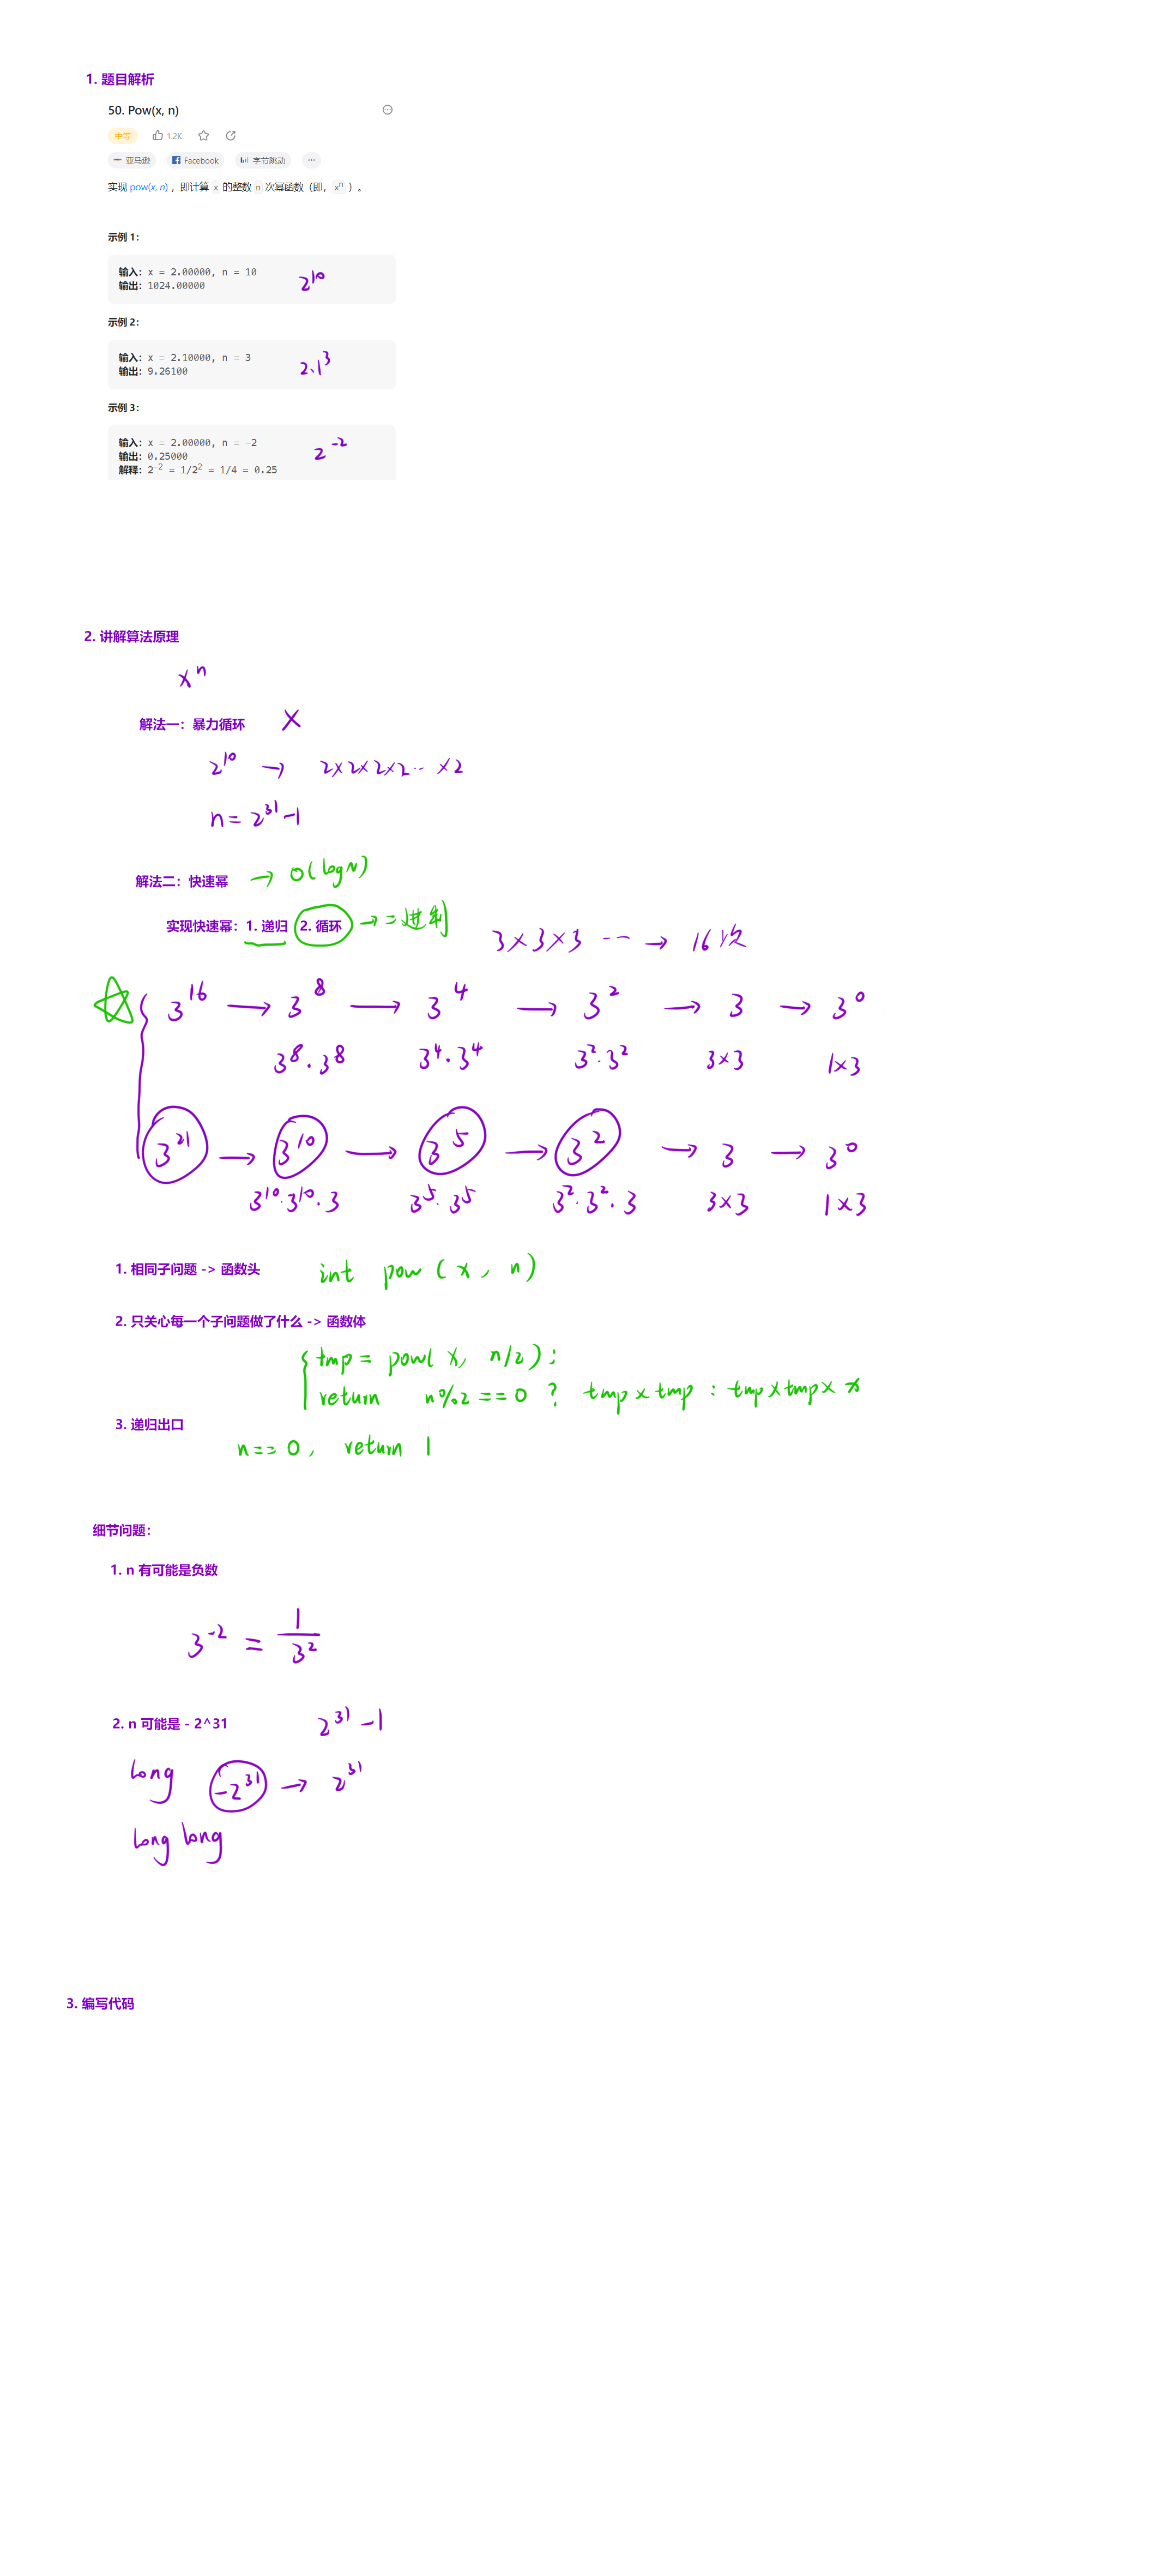 1. 题目解析
50. Pow(x, n)
中等 1.2K
亚马逊 Facebook 字节跳动 ...
实现 pow(x, n) ，即计算 x 的整数 n 次幂函数（即，xⁿ ）。
示例 1：
输入：x = 2.00000, n = 10
输出：1024.00000
2¹⁰
示例 2：
输入：x = 2.10000, n = 3
输出：9.26100
2.1³
示例 3：
输入：x = 2.00000, n = -2
输出：0.25000
解释：2⁻² = 1/2² = 1/4 = 0.25
2⁻²
2. 讲解算法原理
xⁿ
解法一：暴力循环 ×
2¹⁰ → 2×2×2×2... ×2
n = 2³¹-1
解法二：快速幂 → O(logN)
实现快速幂：1. 递归 2. 循环 → 二进制
3×3×3 ... → 16次
3¹⁶ → 3⁸ → 3⁴ → 3² → 3 → 3⁰
3⁸·3⁸ 3⁴·3⁴ 3²·3² 3×3 1×3
3²¹ → 3¹⁰ → 3⁵ → 3² → 3 → 3⁰
3¹⁰·3¹⁰·3 3⁵·3⁵ 3²·3²·3 3×3 1×3
1. 相同子问题 -> 函数头 int pow (x, n)
2. 只关心每一个子问题做了什么 -> 函数体
tmp = pow( x, n/2);
return n%2 == 0 ? tmp×tmp : tmp×tmp×x
3. 递归出口
n == 0, return 1
细节问题：
1. n 有可能是负数
3⁻² = 1/3²
2. n 可能是 - 2^31 2³¹-1
long -2³¹ → 2³¹
long long
3. 编写代码